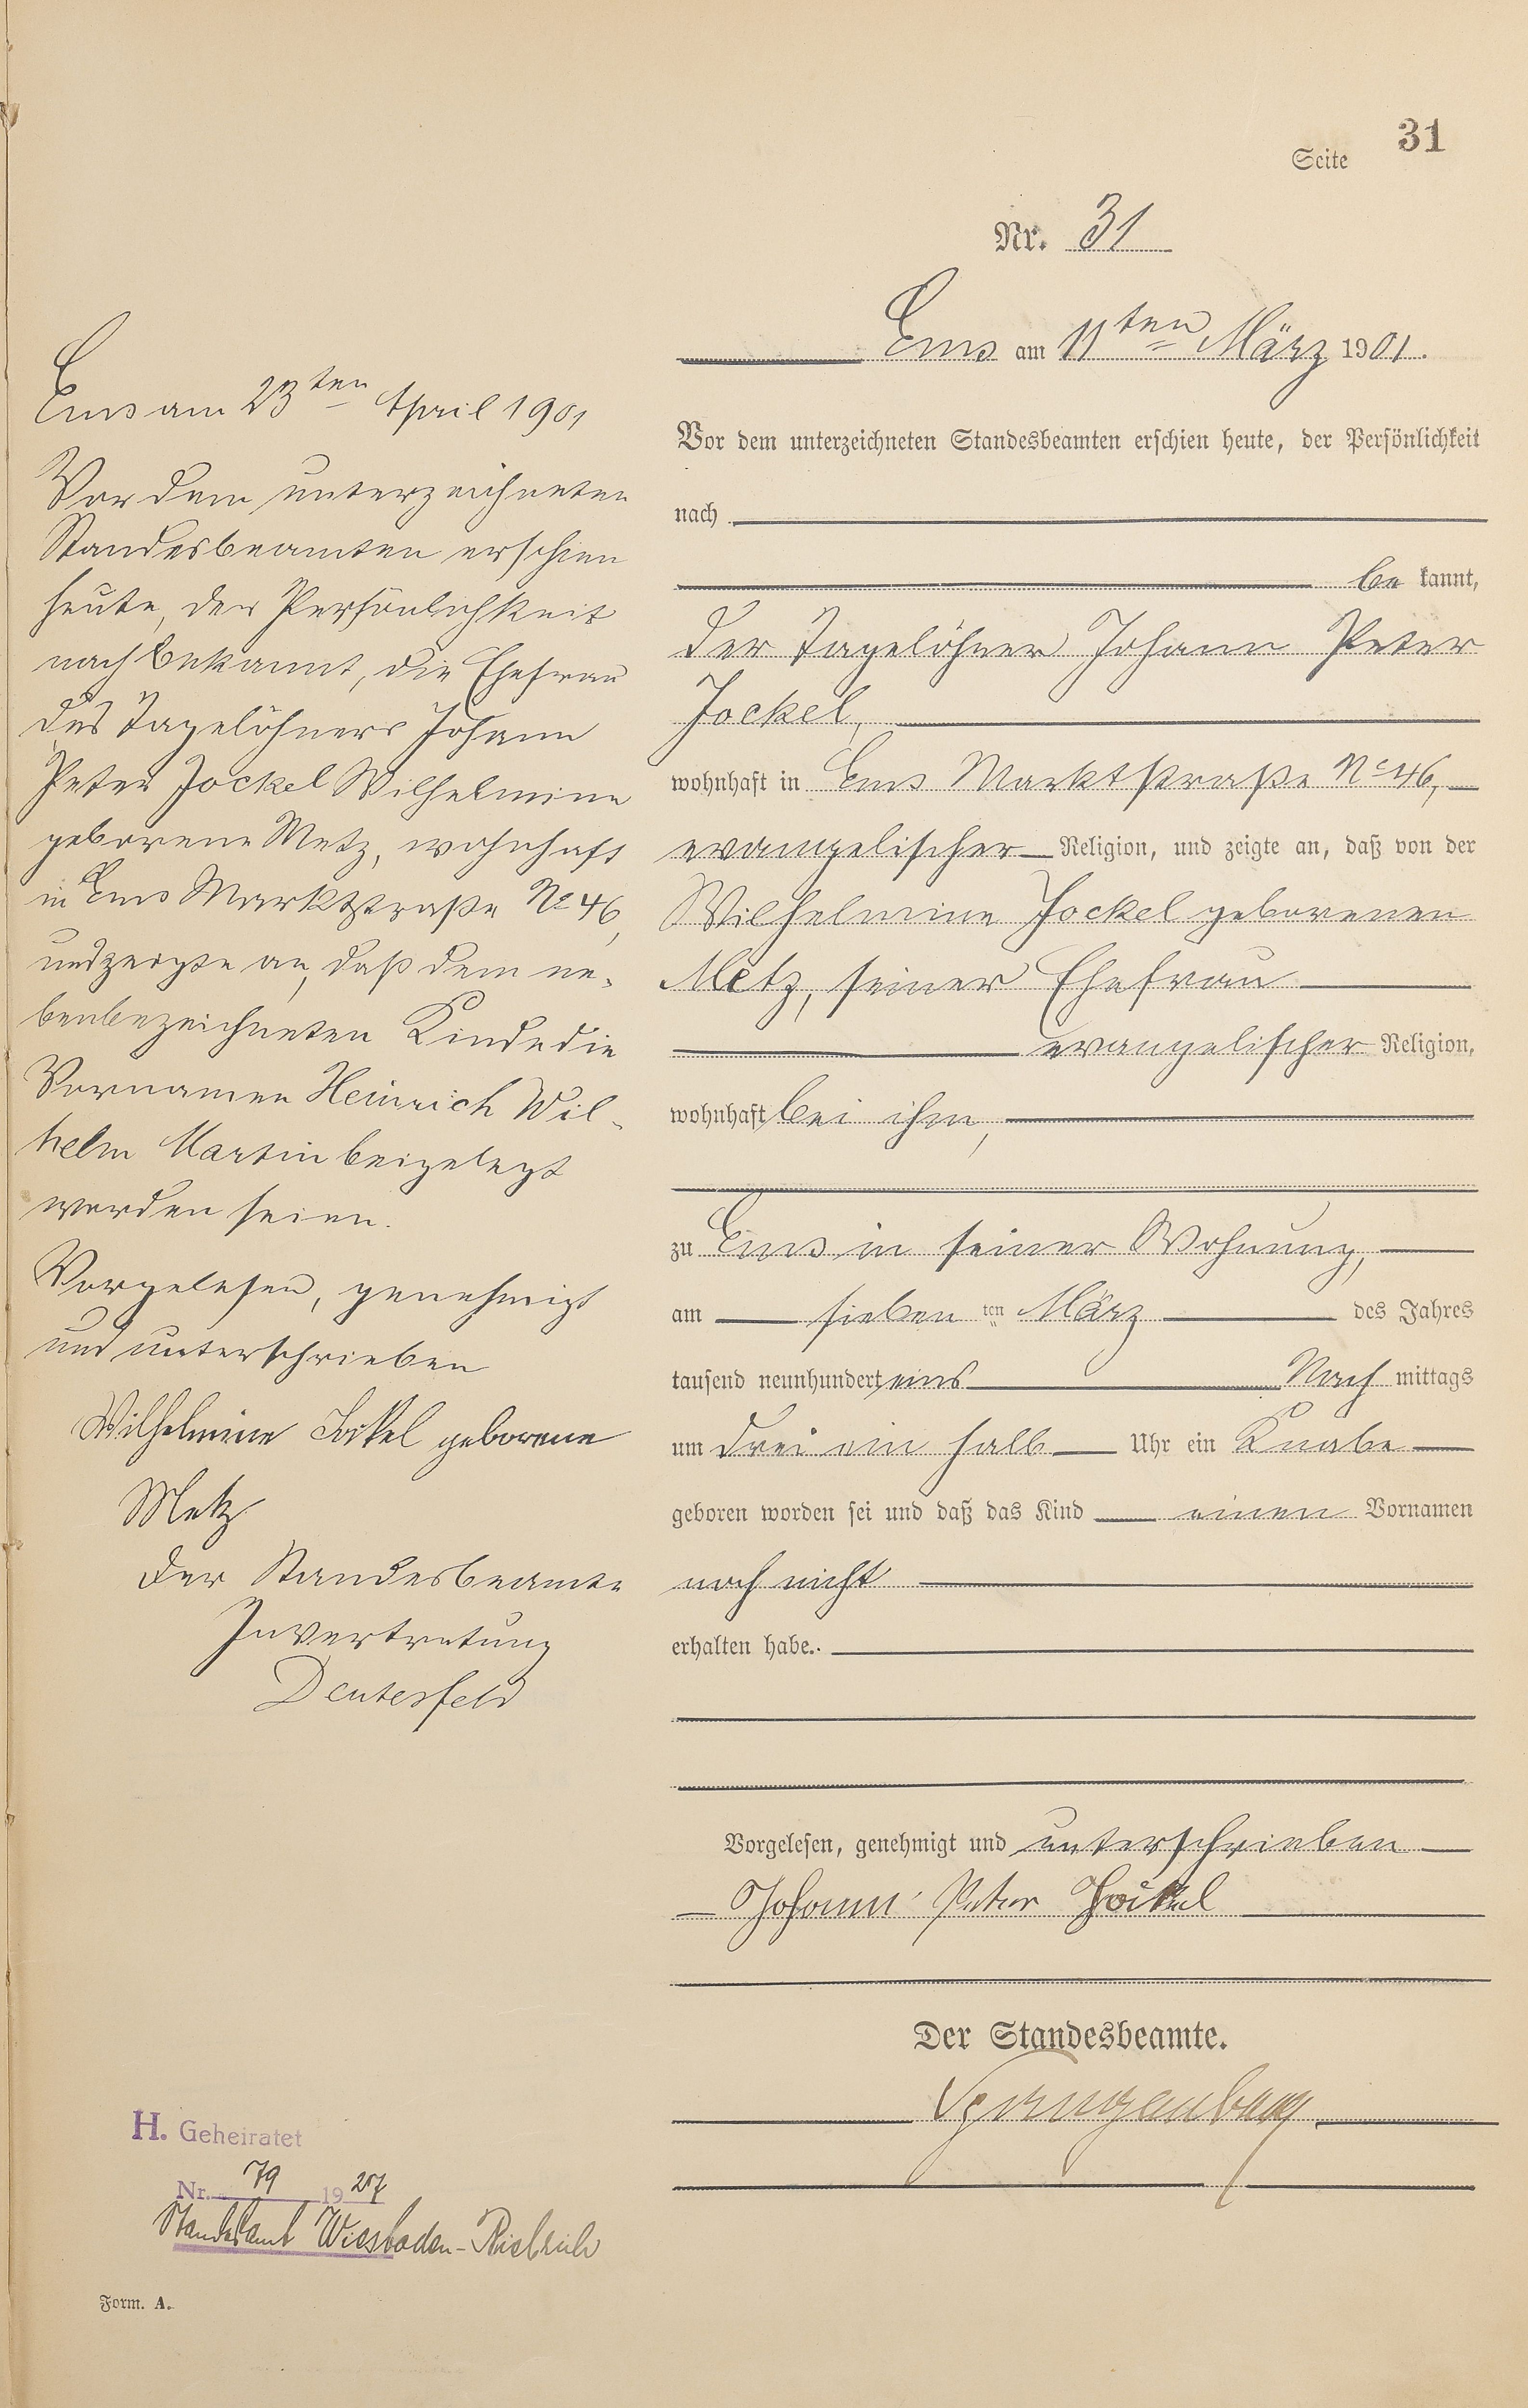 Seite 31
Nr. 31
Ems am 11ten März 1901.
Vor dem unterzeichneten Standesbeamten erschien heute, der Persönlichkeit
nach
be kannt,
der Tagelöhner Johann Peter
Jockel,
wohnhaft in Ems Marktstraße No 46,
evangelischer Religion, und zeigte an, daß von der
Wilhelmine Jockel geborenen
Metz, seiner Ehefrau
evangelischer Religion,
wohnhaft bei ihm,
zu Ems in seiner Wohnung,
am sieben ten März des Jahres
tausend neunhundert eins Nach mittags
um drei ein halb Uhr ein Knabe
geboren worden sei und daß das Kind einen Vornamen
noch nicht
erhalten habe.
Vorgelesen, genehmigt und unterschrieben
Johann Peter Jockel
Der Standesbeamte.
Ems am 23ten April 1901
Vor dem unterzeichneten
Standesbeamten erschien
heute, der Persönlichkeit
nach bekannt, die Ehefrau
des Tagelöhners Johann
Peter Jockel Wilhelmine
geborene Metz, wohnhaft
in Ems Marktstraße No 46,
und zeigte an, daß dem ne-
benbezeichneten Kinde die
Vornamen Heinrich Wil-
helm Martin beigelegt
worden seien.
Vorgelesen, genehmigt
und unterschrieben
Wilhelmine Jockel geborene
Metz
Der Standesbeamte
In Vertretung
Deutesfeld
H. Geheiratet
Nr. 79 1927
Standesamt Wiesbaden-Biebrich
Form. A.